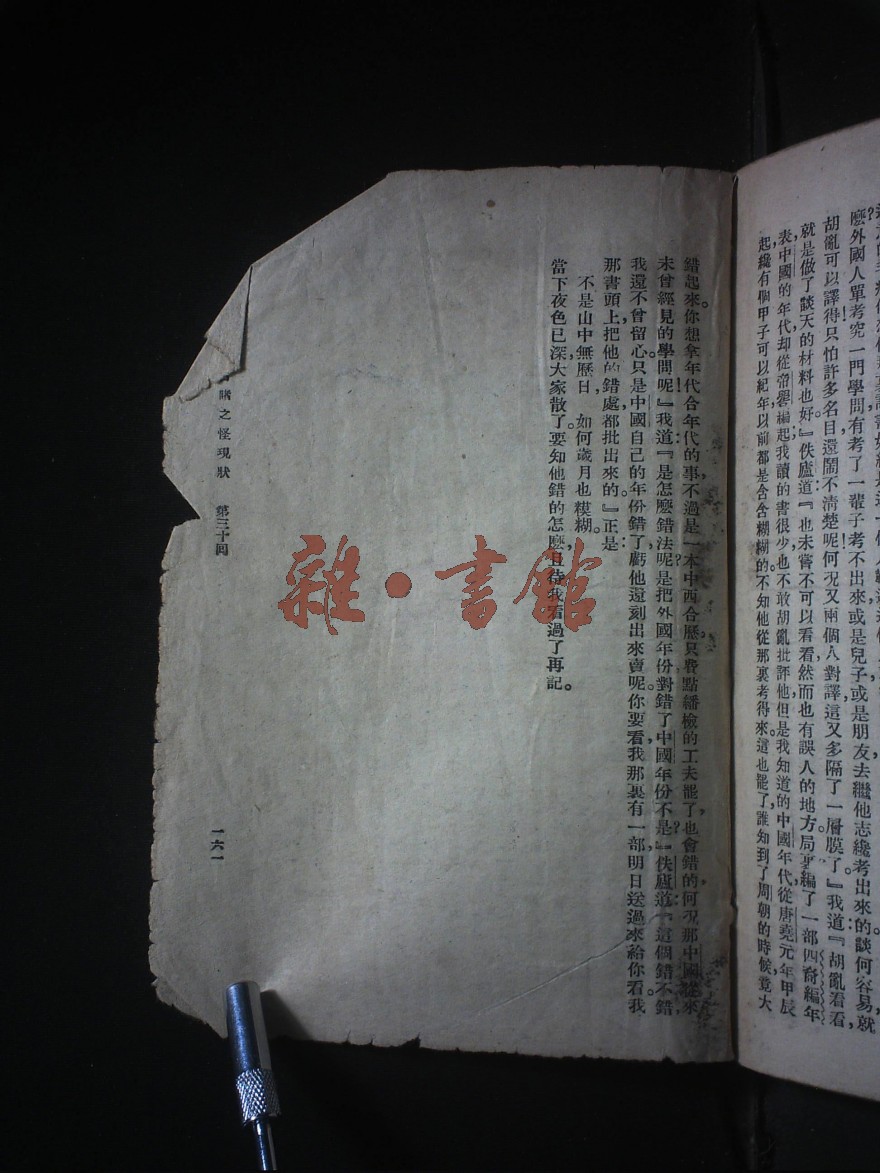 麼外國人單考究一門學問有考了一輩子考不出來或是兒子或是朋友去繼他志纔考出來的談何容易就
胡亂可以譯得只怕許多名目還鬧不清楚呢何況又兩個人對譯這又多隔了一層膜了』我道『胡亂看看
就是做了談天的材料也好』佚廬道『也未嘗不可以看看然而也有誤人的地方局裏編了一部四裔編年
表中國的年代却從帝嚳編起我讀的書很少也不敢胡亂批評他但是我知道的中國年代從唐堯元年甲辰
起纔有個甲子可以紀年以前都是含含糊糊的不知他從那裏考得來這也罷了誰知到了周朝的時候竟大
錯起來你想拿年代合年代的事不過是一本中西合歷只費點繙檢的工夫罷了也會錯的何況那中國從來
未曾經見的學問呢』我道『是怎麼錯法呢是把外國年份對錯了中國年份不是』佚廬道『這個錯不錯
我還不曾留心只是中國自己的年份錯了虧他還刻出來賣呢你要看我那裏有一部明日送過來給你看我
那書頭上把他的錯處都批出來的』正是
不是山中無歷日 如何歲月也糢糊
當下夜色已深大家散了要知他錯的怎麼且待我看過了再記
睹之怪現狀 第三十回
一六一
雜·書館